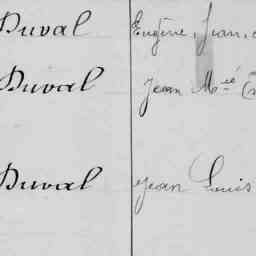 Duval Eugène, Jean,
Duval Jean M.ié
Duval Jean Louis